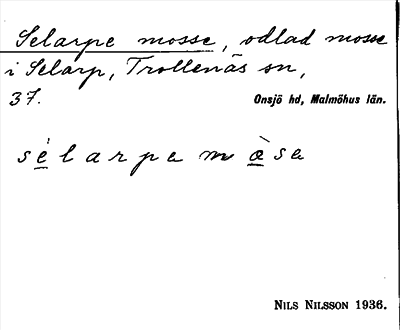 Selarpe mosse, odlad mosse
i Selarp, Trollenäs sn,
37. Onsjö hd, Malmöhus län.
sèlarpa mòsa
NILS NILSSON 1936.